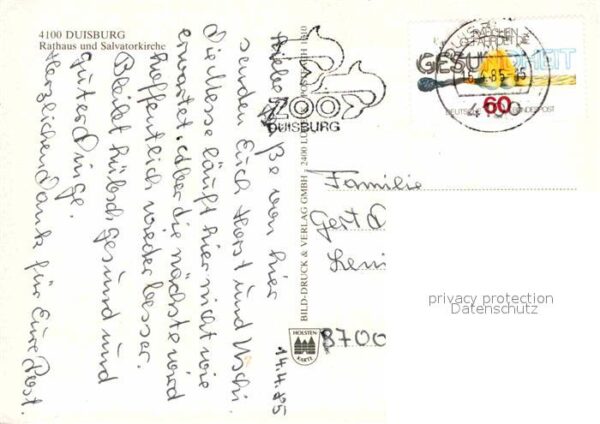 4100 DUISBURG
Rathaus und Salvatorkirche
14.4.85
Liebe Grüße von hier
senden Euch Horst und Uschi.
Die Messe läuft hier nicht wie
erwartet. Aber die nächste wird
hoffentlich wieder besser.
Bleibt hübsch gesund und
guter Dinge.
Herzlichen Dank für Eure Post.
ZOO
DUISBURG
BILD-DRUCK & VERLAG GMBH · 2400
HOLSTEN-
KARTE
GESUNDHEIT
60
DEUTSCHE BUNDESPOST
Familie
Gert
8700
privacy protection
Datenschutz